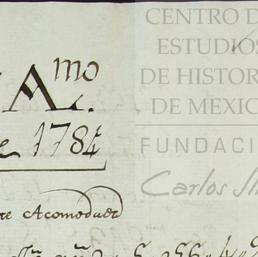 CENTRO D
ESTUDIOS
DE HISTOR
DE MEXIC
FUNDACI
Carlos Sl
Amo
e 1784
re Acomodaer